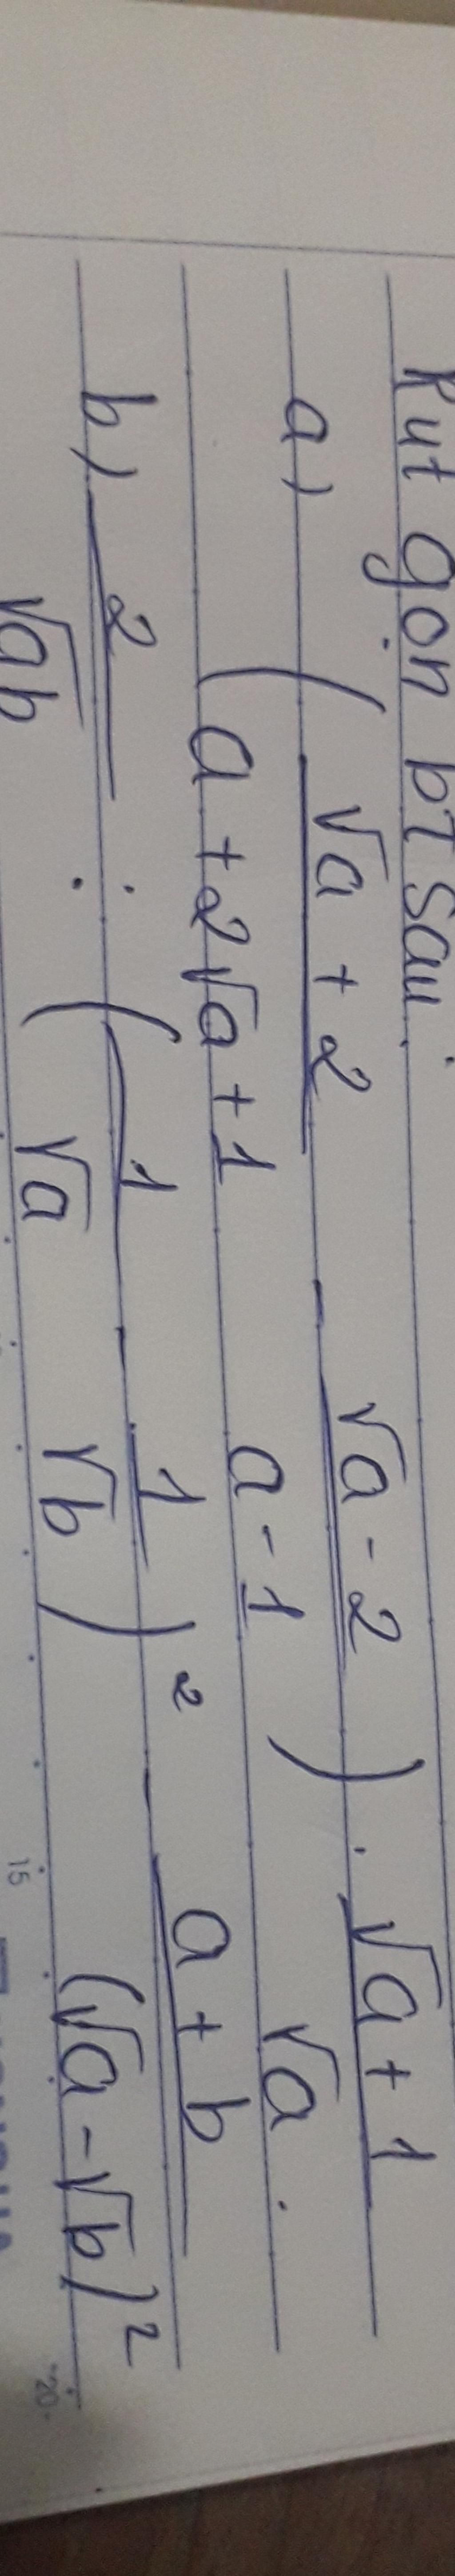 Rút gọn bT sau:
a) ( √a + 2 / a + 2√a + 1 - √a - 2 / a - 1 ) . √a + 1 / √a .
b) 2 / √ab : ( 1 / √a - 1 / √b )² - a + b / (√a - √b)²
15
20